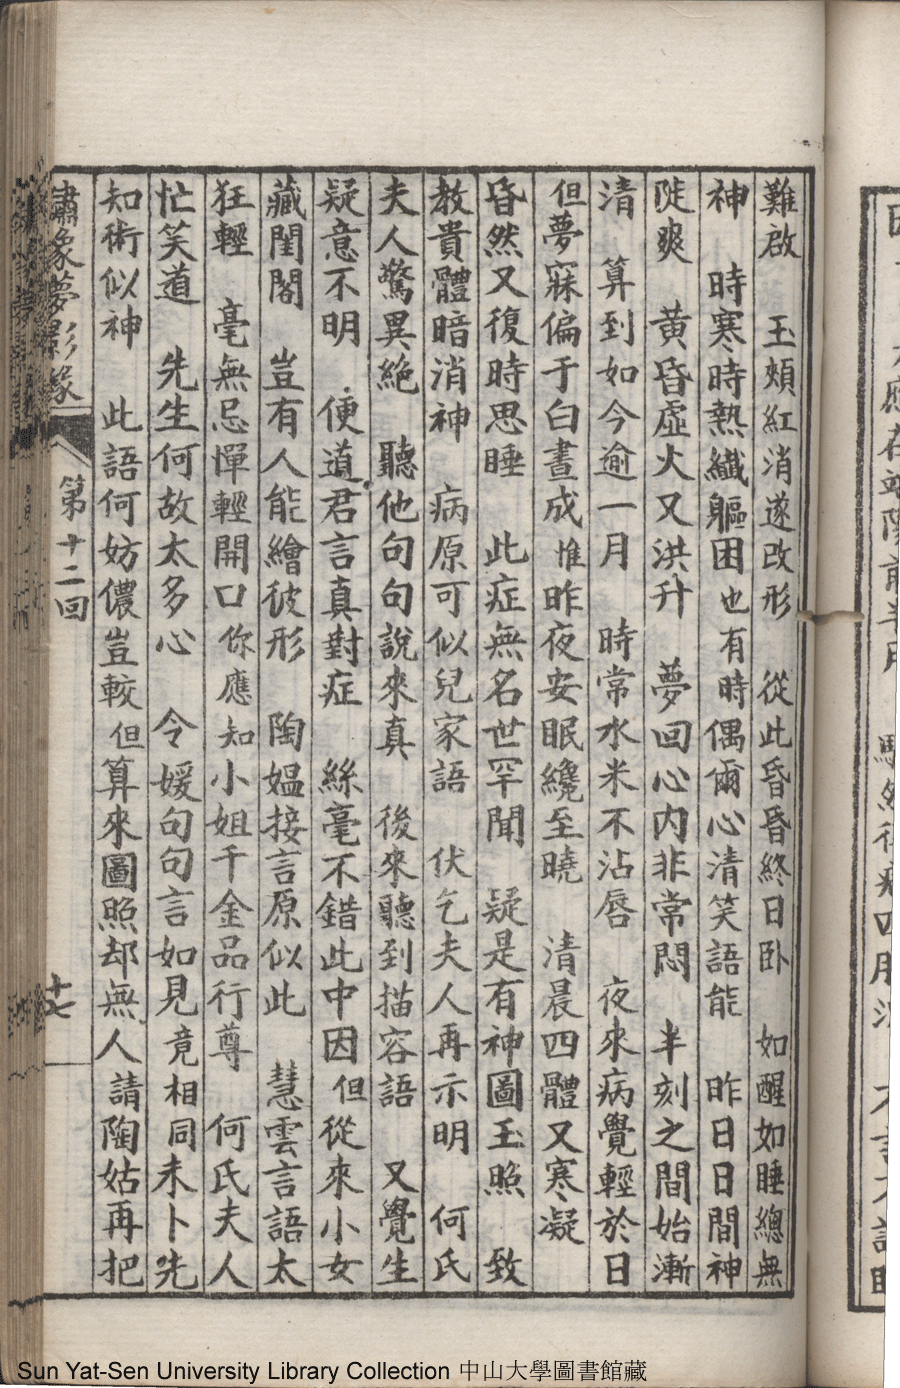 難啟　玉頰紅消遂改形　從此昏昏終日卧　如醒如睡總無
神　時寒時熱纖軀困也有時偶爾心清笑語能　昨日日間神
陡爽　黃昏虛火又洪升　夢回心内非常悶　半刻之間始漸
清　算到如今逾一月　時常水米不沾唇　夜來病覺輕於日
但夢寐偏于白晝成惟昨夜安眠纔至曉　清晨四體又寒凝
昏然又復時思睡　此症無名世罕聞　疑是有神圖玉照　致
教貴體暗消神　病原可似兒家語　伏乞夫人再示明　何氏
夫人驚異絶　聽他句句說來真　後來聽到描容語　又覺生
疑意不明　便道君言真對症　絲毫不錯此中因但從來小女
藏閨閣　豈有人能繪彼形　陶媪接言原似此　慧雲言語太
狂輕　毫無忌憚輕開口你應知小姐千金品行尊　何氏夫人
忙笑道　先生何故太多心　令媛句句言如見竟相同未卜先
知術似神　此語何妨儂豈較但算來圖照却無人請陶姑再把
繡像夢影緣　第十二回　十七
Sun Yat-Sen University Library Collection 中山大學圖書館藏